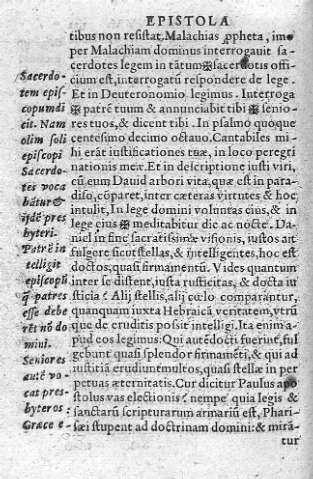 EPISTOLA
tibus non resistat. Malachias ꝓpheta, imo
per Malachiam dominus interrogauit sa-
cerdotes legem in tãtum ✠ sacerdotis offi-
cium est, interrogatũ respondere de lege.
Et in Deuteronomio legimus. Interroga
✠ patrẽ tuum & annunciabit tibi ✠ senio-
res tuos, & dicent tibi. In psalmo quoque
centesimo decimo octauo. Cantabiles mi-
hi erãt iustificationes tuæ, in loco peregri
nationis meæ. Et in descriptione iusti viri,
cũ eum Dauid arbori vitæ, quæ est in para-
diso, cõparet, inter cæteras virtutes & hoc
intulit, In lege domini voluntas eius, & in
lege eius ✠ meditabitur die ac nocte. Da-
niel in fine sacratissimæ visionis, iustos ait
fulgere sicut stellas, & intelligentes, hoc est
doctos, quasi firmamentũ. Vides quantum
inter se distent, iusta rusticitas, & docta iu
sticia? Alij stellis, alij cœlo comparantur,
quanquam iuxta Hebraicã veritatem, vtrũ
que de eruditis possit intelligi. Ita enim a-
pud eos legimus. Qui autẽ docti fuerint, ful
gebunt quasi splendor firmamẽti, & qui ad
iustitiã erudiunt multos, quasi stellæ in per
petuas æternitatis. Cur dicitur Paulus apo
stolus vas electionis? nempe quia legis &
sanctarũ scripturarum armariũ est, Phari-
sæi stupent ad doctrinam domini: & mirã
tur
Sacerdo-
tem epis-
copum di
cit. Nam
olim soli
episcopi
Sacerdo-
tes voca
bãtur &
ijdẽ pres
byteri.
Patrẽ in
telligit
episcopũ
q̃ patres
esse debe
rẽt nõ do
mini.
Seniores
autẽ vo-
cat pres-
byteros:
Græce e-